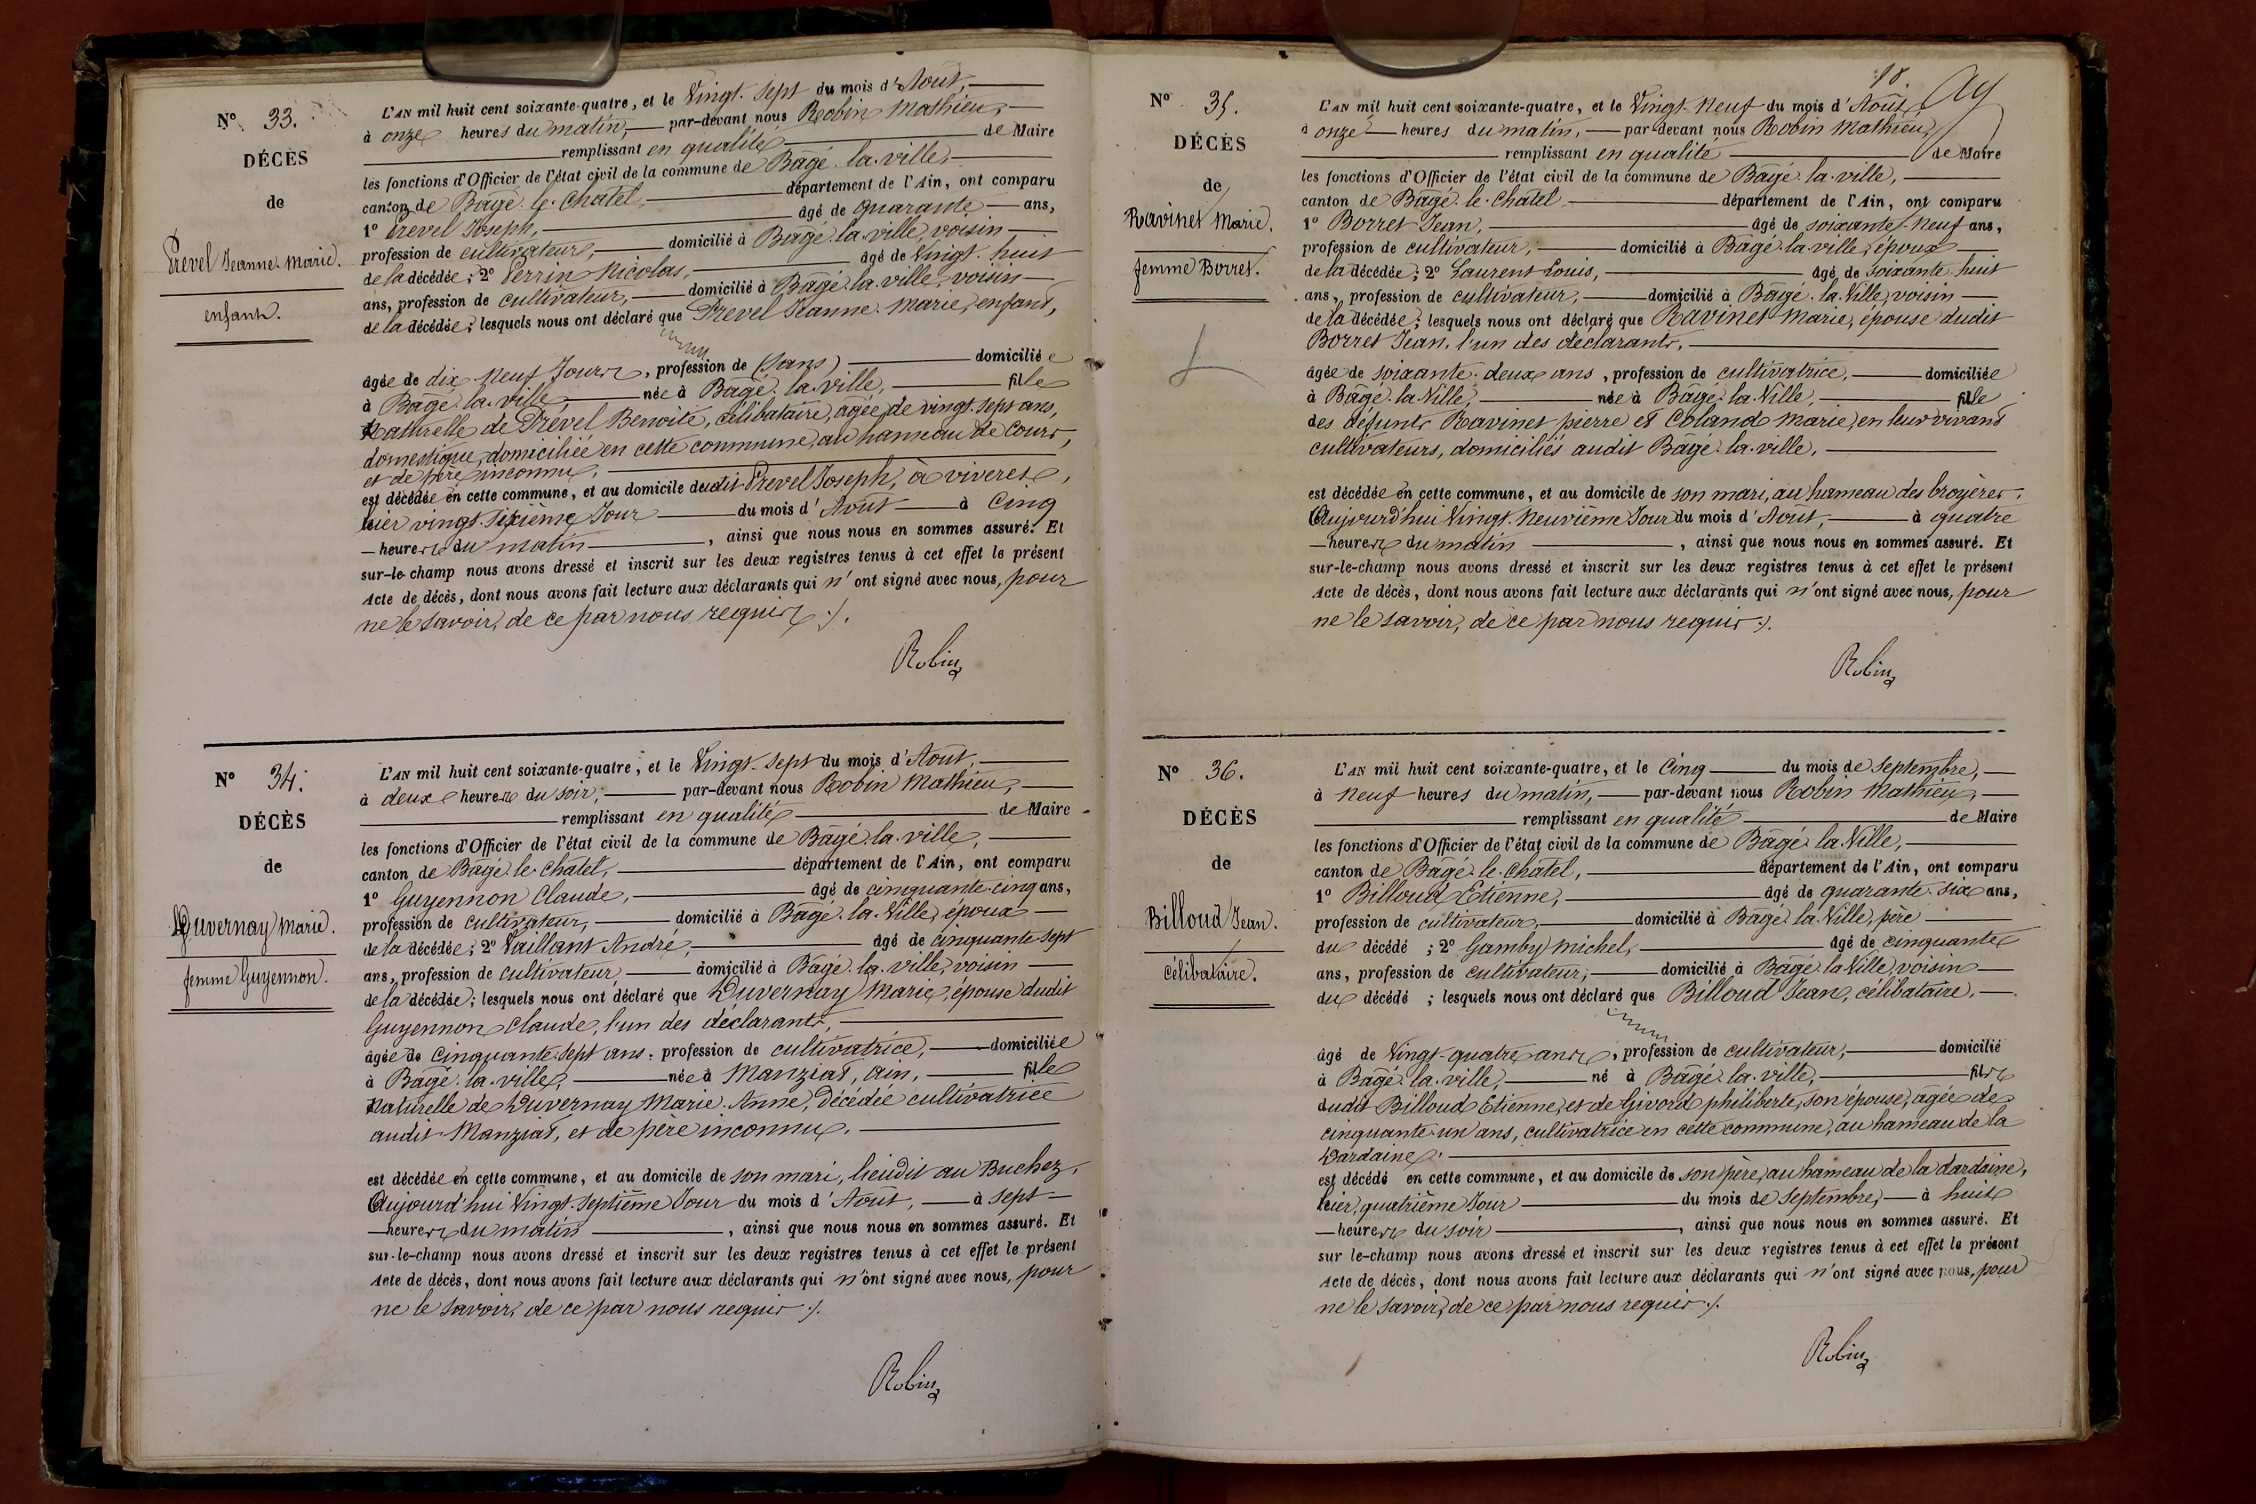 N° 33.
DÉCÈS
de
Prevel Jeanne-Marie.
enfant.
L'AN mil huit cent soixante-quatre, et le Vingt-sept du mois d'Août,
à onze heures du matin, par-devant nous Robin Mathieu,
remplissant en qualité de Maire
les fonctions d'Officier de l'état civil de la commune de Bâgé-la-ville,
canton de Bâgé-le-Chatel, département de l'Ain, ont comparu
1° Prevel Joseph, âgé de quarante ans,
profession de cultivateur, domicilié à Bâgé-la-ville, voisin
de la décédée; 2° Perrin Nicolas, âgé de Vingt-huit
ans, profession de cultivateur, domicilié à Bâgé-la-ville, voisin
de la décédée; lesquels nous ont déclaré que Prevel Jeanne-Marie, enfant,
âgée de dix-neuf Jours, profession de (sans) domiciliée
à Bâgé-la-ville née à Bâgé-la-ville, fille
Naturelle de Prével Benoite, célibataire, âgée de vingt-sept ans,
domestique, domiciliée en cette commune, au hameau de Cours,
et de père inconnu.
est décédée en cette commune, et au domicile dudit Prevel Joseph, à viveret,
hier vingt-sixième Jour du mois d'Août à Cinq
heures du matin, ainsi que nous nous en sommes assuré. Et
sur-le-champ nous avons dressé et inscrit sur les deux registres tenus à cet effet le présent
Acte de décès, dont nous avons fait lecture aux déclarants qui n'ont signé avec nous, pour
ne le savoir, de ce par nous requis ./.
Robin
N° 34.
DÉCÈS
de
Duvernay Marie.
femme Guyennon.
L'AN mil huit cent soixante-quatre, et le Vingt-sept du mois d'Août,
à deux heures du soir, par-devant nous Robin Mathieu,
remplissant en qualité de Maire
les fonctions d'Officier de l'état civil de la commune de Bâgé-la-ville,
canton de Bâgé-le-Chatel, département de l'Ain, ont comparu
1° Guyennon Claude, âgé de cinquante-cinq ans,
profession de cultivateur, domicilié à Bâgé-la-Ville, époux
de la décédée; 2° Vaillant André, âgé de cinquante-sept
ans, profession de cultivateur, domicilié à Bâgé-la-ville, voisin
de la décédée; lesquels nous ont déclaré que Duvernay Marie, épouse dudit
Guyennon Claude, l'un des déclarants,
âgée de cinquante-sept ans, profession de cultivatrice, domiciliée
à Bâgé-la-ville, née à Manziat, Ain, fille
Naturelle de Duvernay Marie-Anne, décédée cultivatrice
audit Manziat, et de père inconnu.
est décédée en cette commune, et au domicile de son mari, lieudit au Buchez,
Aujourd'hui Vingt-septième Jour du mois d'Août, à sept
heures du matin, ainsi que nous nous en sommes assuré. Et
sur-le-champ nous avons dressé et inscrit sur les deux registres tenus à cet effet le présent
Acte de décès, dont nous avons fait lecture aux déclarants qui n'ont signé avec nous, pour
ne le savoir, de ce par nous requis ./.
Robin
18.
N° 35.
DÉCÈS
de
Ravinet Marie.
femme Borret.
L'AN mil huit cent soixante-quatre, et le Vingt-neuf du mois d'Août,
à onze heures du matin, par-devant nous Robin Mathieu,
remplissant en qualité de Maire
les fonctions d'Officier de l'état civil de la commune de Bâgé-la-ville,
canton de Bâgé-le-Chatel département de l'Ain, ont comparu
1° Borret Jean, âgé de soixante-neuf ans,
profession de cultivateur, domicilié à Bâgé-la-ville, époux
de la décédée; 2° Laurent Louis, âgé de soixante-huit
ans, profession de cultivateur, domicilié à Bâgé-la-Ville, voisin
de la décédée; lesquels nous ont déclaré que Ravinet Marie, épouse dudit
Borret Jean, l'un des déclarants,
âgée de soixante-deux ans, profession de cultivatrice, domiciliée
à Bâgé-la-Ville, née à Bâgé-la-Ville, fille
des défunts Ravinet pierre et Coland Marie, en leur vivant
cultivateurs, domiciliés audit Bâgé-la-ville.
est décédée en cette commune, et au domicile de son mari, au hameau des broyères,
Aujourd'hui Vingt-Neuvième Jour du mois d'Août, à quatre
heures du matin, ainsi que nous nous en sommes assuré. Et
sur-le-champ nous avons dressé et inscrit sur les deux registres tenus à cet effet le présent
Acte de décès, dont nous avons fait lecture aux déclarants qui n'ont signé avec nous, pour
ne le savoir, de ce par nous requis ./.
Robin
N° 36.
DÉCÈS
de
Billoud Jean.
célibataire.
L'AN mil huit cent soixante-quatre, et le Cinq du mois de Septembre,
à Neuf heures du matin, par-devant nous Robin Mathieu,
remplissant en qualité de Maire
les fonctions d'Officier de l'état civil de la commune de Bâgé-la-Ville,
canton de Bâgé-le-Chatel, département de l'Ain, ont comparu
1° Billoud Etienne, âgé de quarante-six ans,
profession de cultivateur, domicilié à Bâgé-la-Ville, père
du décédé; 2° Gamby Michel, âgé de cinquante
ans, profession de cultivateur, domicilié à Bâgé-la-Ville, voisin
du décédé; lesquels nous ont déclaré que Billoud Jean, célibataire,
âgé de Vingt-quatre ans, profession de cultivateur, domicilié
à Bâgé-la-ville, né à Bâgé-la-ville, fils
dudit Billoud Etienne, et de Givord philiberte, son épouse, âgée de
cinquante-un ans, cultivatrice en cette commune, au hameau de la
Dardaine.
est décédé en cette commune, et au domicile de son père, au hameau de la dardaine,
hier, quatrième Jour du mois de Septembre, à huit
heures du soir, ainsi que nous nous en sommes assuré. Et
sur le-champ nous avons dressé et inscrit sur les deux registres tenus à cet effet le présent
Acte de décès, dont nous avons fait lecture aux déclarants qui n'ont signé avec nous, pour
ne le savoir, de ce par nous requis ./.
Robin